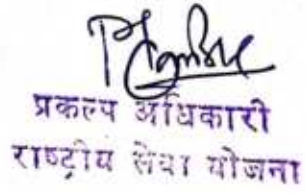 प्रकल्प अधिकारी
राष्ट्रीय सेवा योजना